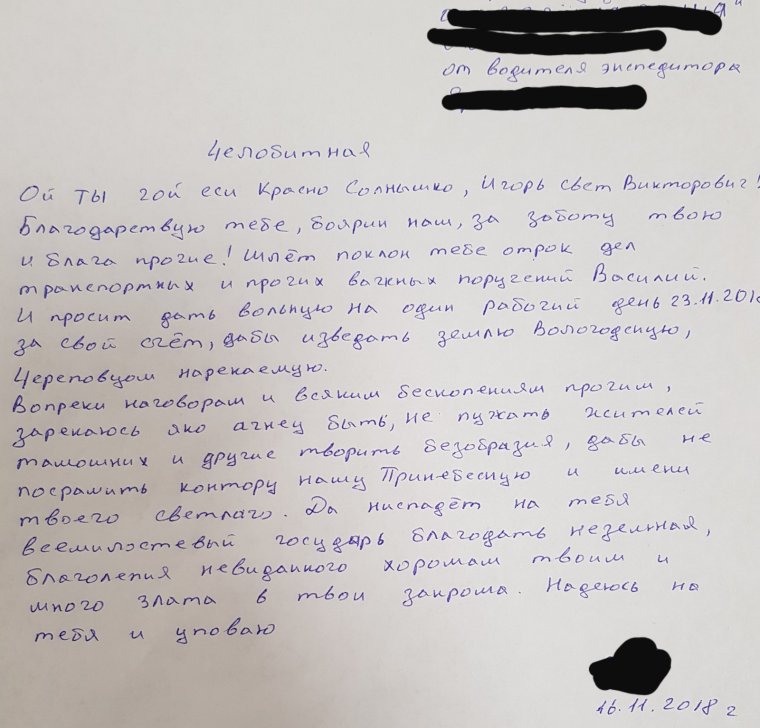 от водителя экспедитора
Челобитная
Ой ты гой еси Красно Солнышко, Игорь свет Викторович!
Благодарствую тебе, боярин наш, за заботу твою
и блага прочие! Шлёт поклон тебе отрок дел
транспортных и прочих важных поручений Василий.
И просит дать вольную на один рабочий день 23.11.2018
за свой счёт, дабы изведать землю Вологодскую,
Череповцом нарекаемую.
Вопреки наговорам и всяким бескопениям прочим,
зарекаюсь яко агнец быть, не пужать жителей
тамошних и другие творить безобразия, дабы не
посрамить контору нашу Принебесную и имени
твоего светлаго. Да ниспадёт на тебя
всемилостевый государь благодать незельная,
благолепия невиданного хоромам твоим и
много злата в твои закрома. Надеюсь на
тебя и уповаю
16.11.2018 г